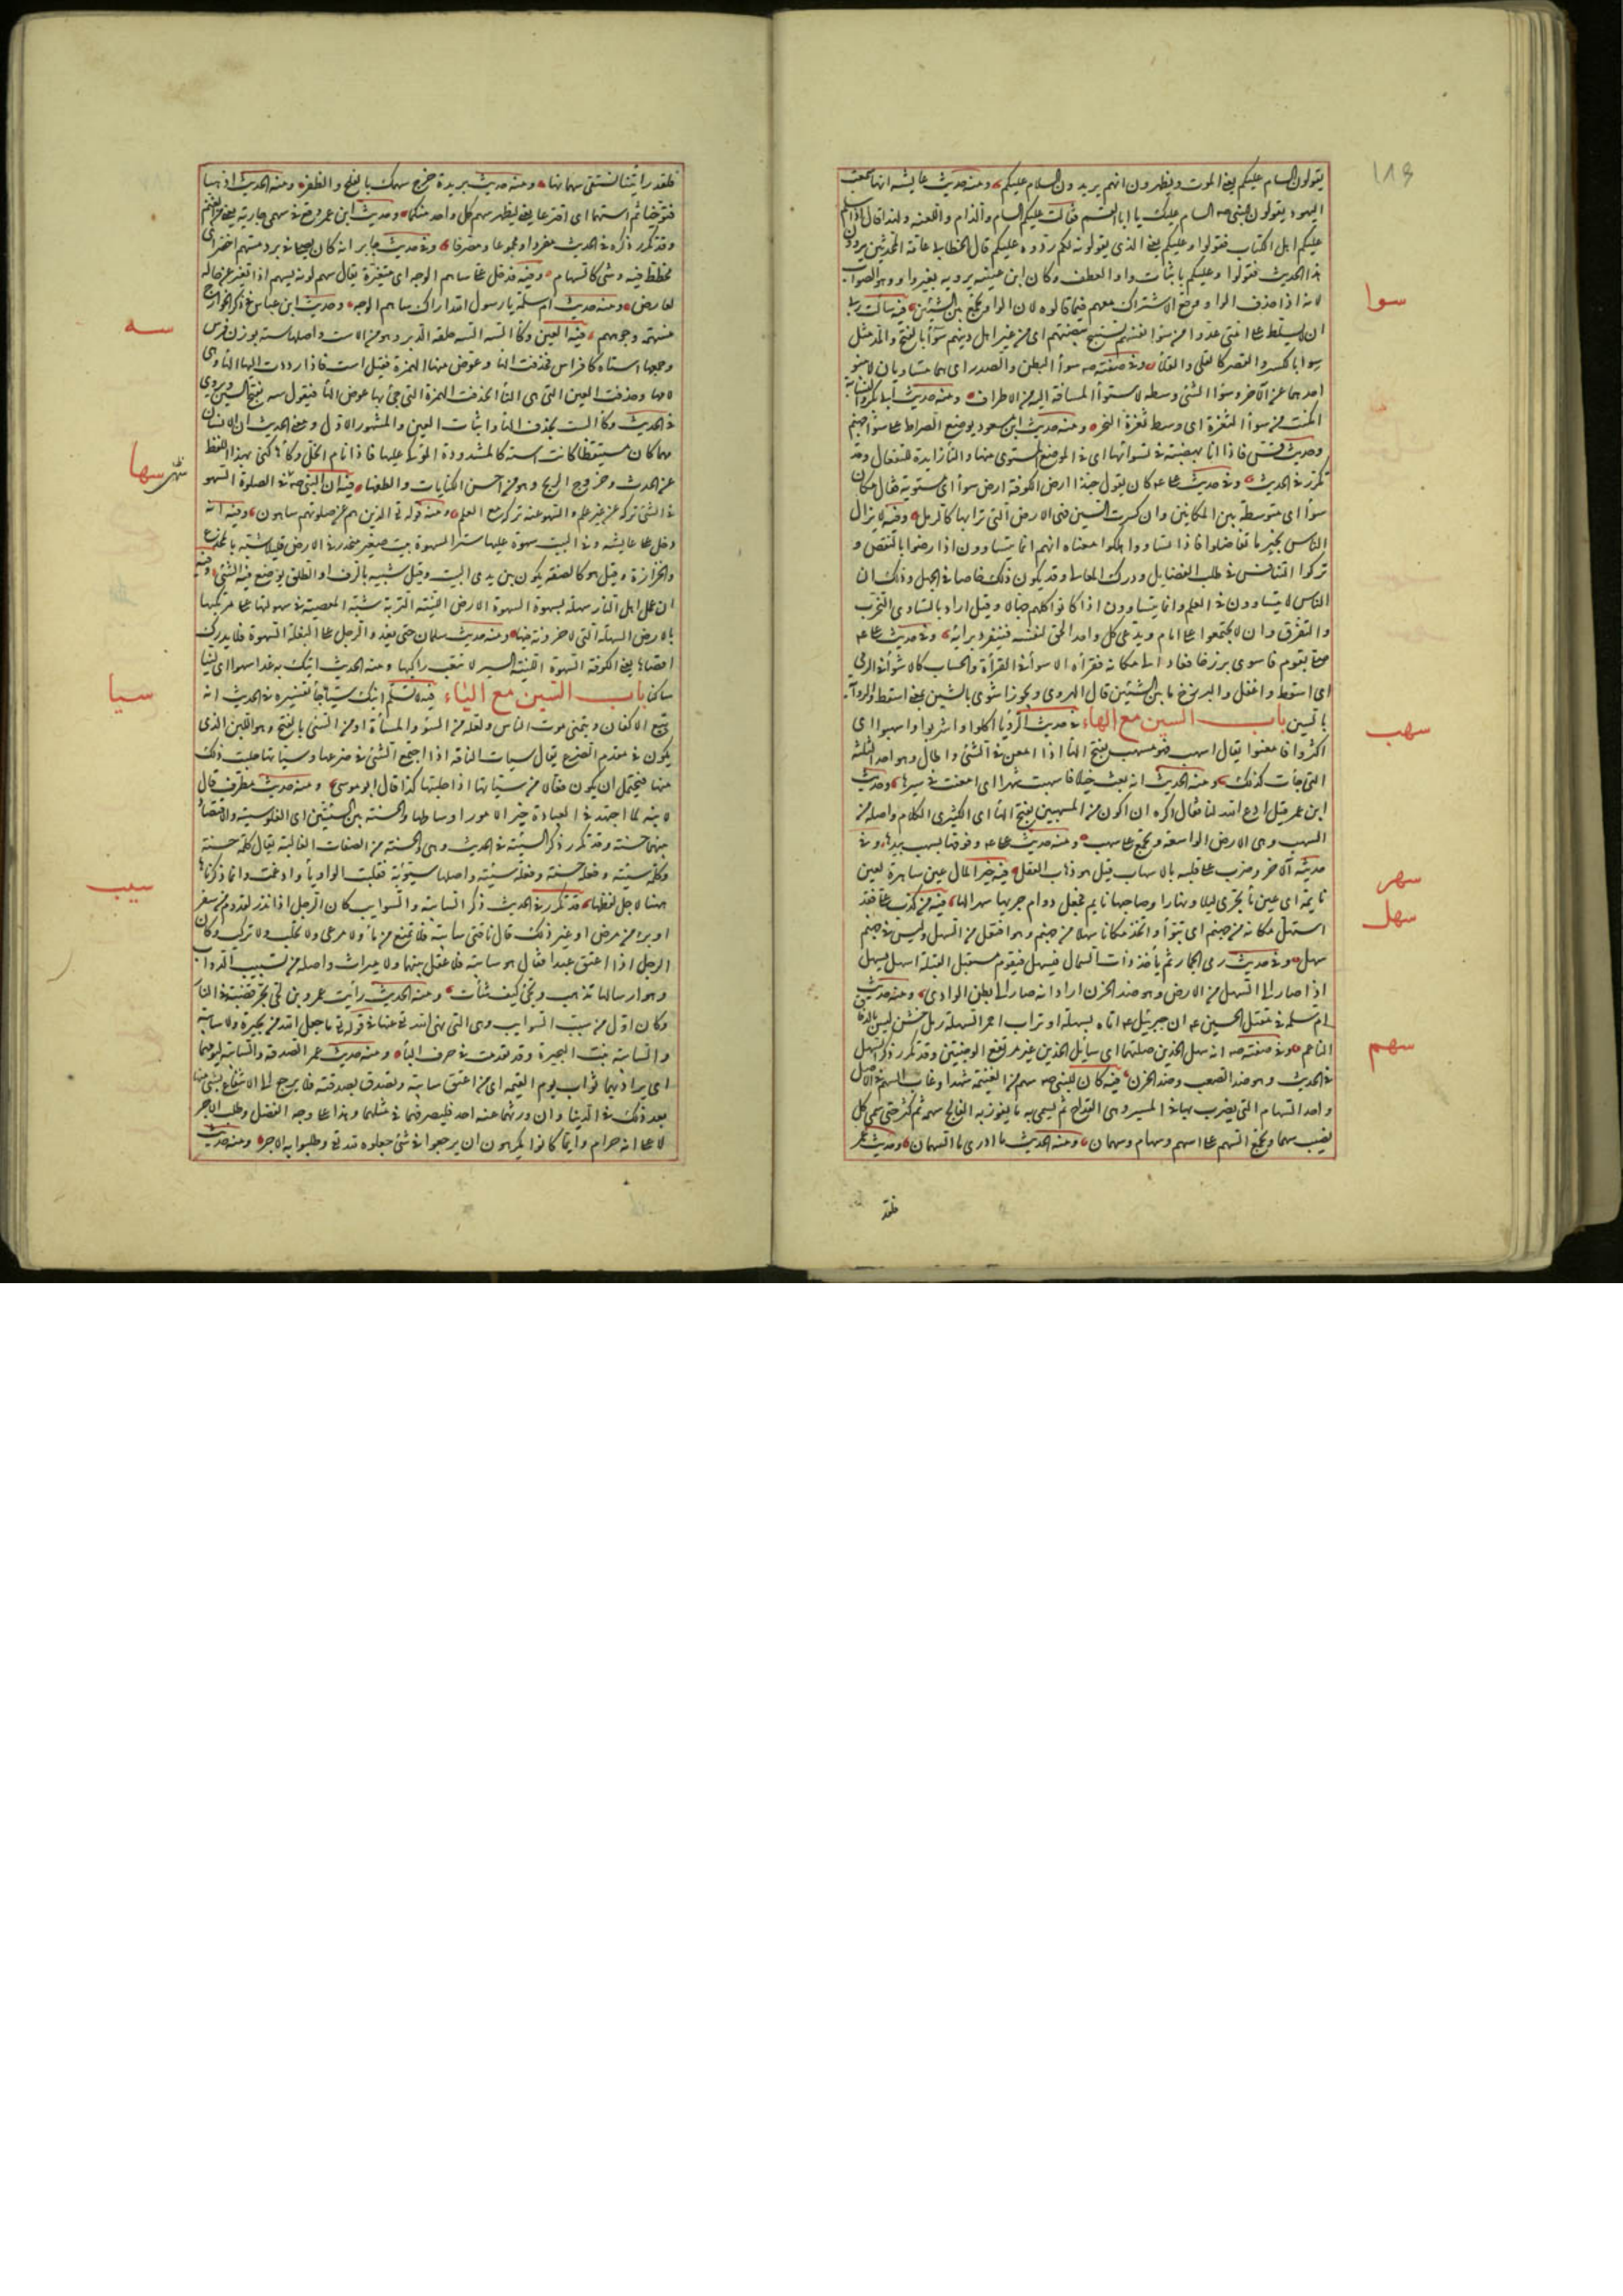 يقولون السام عليكم يعني الموت ويظهرون انهم يريدون السلام عليكم ومنه حديث عايشه انها سمعت
اليهود يقولون للنبي صه السام عليك يا ابا القسم فقالت عليكم السام والذام واللعنه ولهذا قال اذا سلم
عليكم اهل الكتاب فقولوا وعليكم يعني الذي يقولونه لكم ردوه عليكم قال الخطابي عامة المحدثين يروون
هذا الحديث فقولوا وعليكم باثبات واو العطف وكان ابن عيينه يرويه بغير واو وهو الصواب
لانه اذا حذف الواو الاشتراك معهم فيما قالوه لان الواو تجمع بين الشيئين فيه سالت ربي
ان لا يسلط على امتي عدوا من سوا انفسهم فيستبيح بيضتهم اى من غير اهل دينهم سوآ بالفتح والمد مثل
سوا بالكسر والقصر كالقلى والقلاء وفي صفته صه سوأ البطن والصدر اى هما متساويان لا ينبو
احدهما عن الآخر وسوا الشئ وسطه لاستوآ المسافة اليه من الاطراف ومنه حديث ابي بكر والنسابة
امكنت من سوآ الثغرة اى وسط ثغرة النحر ومنه حديث ابن مسعود يوضع الصراط على سوآ جهنم
وحديث قس فاذا انا بهضبة في تسوائها اى في الموضع المستوى منها والتاء زايدة للتفعال وقد
تكرر في الحديث وفي حديث على ع كان يقول حبذا ارض الكوفة ارض سوآ اى مستوية يقال مكان
سوآ اى متوسط بين المكانين وان كسرت السين فهي الارض التي ترابها كالرمل وفيه لا يزال
الناس بخير ما تفاضلوا فاذا تساووا هلكوا معناه انهم انما يتساوون اذا رضوا بالنقص و
تركوا التنافس في طلب الفضايل ودرك المعالي وقد يكون ذلك خاصا في الجهل وذلك ان
الناس لا يتساوون في العلم وانما يتساوون اذا كانوا كلهم جهالا وقيل اراد بالتساوى التحزب
والتفرق وان لا يجتمعوا على امام ويدعى كل واحد الحق لنفسه فينفرد برأيه وفي حديث على ع
صلى بقوم فاسوى برزخا فعاد الى مكانه فقرأه الاسوآ في القرأة والحساب كالاشوآ في الرمي
اى اسقط واغفل والبرزخ ما بين الشيئين قال الهروى ويجوز اشوى بالشين بمعنى اسقط والرواية
بالسين باب السين مع الهاء في حديث الرؤيا اكلوا واشربوا واسهبوا اى
اكثروا وامعنوا يقال اسهب فهو مسهب بفتح الهاء اذا امعن في الشئ واطال وهو احد الثلثة
التي جاءت كذلك ومنه الحديث انه بعث خيلا فاسهبت شهرا اى امعنت في سيرها وحديث
ابن عمر قيل له ادع الله لنا فقال اكره ان اكون من المسهبين بفتح الهاء اى الكثيرى الكلام واصله من
السهب وهي الارض الواسعة وتجمع على سهب ومنه حديث على ع وفرقها بسهب بيدها وفي
حديثه الآخر وضرب على قلبه بالاسهاب قيل هو ذهاب العقل فيه خير المال عين ساهرة لعين
نايمة اى عين ماء تجرى ليلا ونهارا وصاحبها نايم فجعل دوام جريها سهرا لها فيه من كذب على فقد
استهل مكانه من جهنم اى تبوأ واتخذ مكانا سهلا من جهنم وهو افتعل من السهل وليس في جهنم
سهل وفي حديث رمى الجمار ثم يأخذ ذات الشمال فيسهل فيقوم مستقبل القبلة اسهل يسهل
اذا صار الى السهل من الارض وهو ضد الحزن اراد انه صار الى بطن الوادى ومنه حديث
ام سلمه في مقتل الحسين ع ان جبرئيل ع اتاه بسهلة او تراب احمر السهلة رمل خشن ليس بالدقاق
الناعم وفي صفته صه انه سهل الخدين صلتهما اى سايل الخدين غير مرتفع الوجنتين وقد تكرر ذكر السهل
في الحديث وهو ضد الصعب وضد الحزن فيه كان للنبي صه سهم من الغنيمة شهد او غاب السهم في الاصل
واحد السهام التي يضرب بها في الميسر وهي القداح ثم سمى به ما يفوز به الفالج سهمه ثم كثر حتى سمى كل
نصيب سهما ويجمع السهم على اسهم وسهام وسهمان ومنه الحديث ما ادرى ما السهمان وحديث عمر
فلقد
١١٩
سوا
سهب
سهر
سهل
سهم
فلقد رأيتنا نستفئ سهمانها ومنه حديث بريدة خرج سهمك بالفلج والظفر ومنه الحديث اذهبا
فتوخيا ثم استهما اى اقترعا يعني ليظهر سهم كل واحد منكما وحديث ابن عمر وقع في سهمي جارية يعني من المغنم
وقد تكرر ذكره في الحديث مفردا ومجموعا ومصرفا وفي حديث جابر انه كان يصلي في برد مسهم اخضر اى
مخطط فيه وشى كالسهام وفيه فدخل على ساهم الوجه اى متغيرة يقال سهم لونه يسهم اذا تغير عن حاله
لعارض ومنه حديث ام سلمة يا رسول الله اراك ساهم الوجه وحديث ابن عباس في ذكر الخوارج
مسهمة وجوههم فيه العين وكاء السه السه حلقه الدبر وهو من الاست واصلها سته بوزن فرس
وجمعها استاه كافراس فحذفت الهاء وعوض منها الهمزة فقيل است فاذا رددت اليها الهاء وهي
لامها وحذفت العين التي هي التاء انحذفت الهمزة التي جئ بها عوض الهاء فتقول سه بفتح السين ويروى
في الحديث وكاء الست بحذف الهاء واثبات العين والمشهور الاول ومعنى الحديث ان الانسان
مهما كان مستيقظا كانت استه كالمشدودة الموكى عليها فاذا نام انحل وكاؤها كنى بهذا اللفظ
عن الحدث وخروج الريح وهو من احسن الكنايات والطفها فيه ان النبي صه سها في الصلوة السهو
في الشئ تركه عن غير علم والسهو عنه تركه مع العلم ومنه قوله تع الذين هم عن صلوتهم ساهون وفيه انه
دخل على عايشه وفي البيت سهوة عليها ستر السهوة بيت صغير منحدر في الارض قليلا شبيه بالمخدع
والخزانة وقيل هو كالصفة يكون بين يدى البيت وقيل شبيه بالرف او الطاق يوضع فيه الشئ وفيه
ان عمل اهل النار سهلة بسهوة السهوة الارض اللينة التربة شبه المعصية في سهولتها على مرتكبها
بالارض السهلة التي لا حزونة فيها ومنه حديث سلمان حتى يغدو الرجل على البغلة السهوة فلا يدرك
اقصاها يعني الكوفة السهوة اللينة السير لا تتعب راكبها ومنه الحديث اتيك به غدا سهوا اى لينا
ساكنا باب السين مع الياء فيه لا تسلم ابنك سياء جاء تفسيره في الحديث انه
يبيع الاكفان ويتمنى موت الناس ولعله من السوء والمساءة او من السئ بالفتح وهو اللبن الذى
يكون في مقدم الضرع يقال سيأت الناقة اذا اجتمع السئ في ضرعها وسيأتها حلبت ذلك
منها فيحتمل ان يكون فعالا من سيأتها اذا حلبتها كذا قال ابو موسى ومنه حديث مطرف قال
لابنه لما اجتهد في العبادة خير الامور اوساطها والحسنة بين السيئتين اى الغلو سيئة والاقتصاد
بينهما حسنة وقد تكرر ذكر السيئة في الحديث وهي والحسنة من الصفات الغالبة يقال كلمة حسنة
وكلمة سيئة وفعلة حسنة وفعلة سيئة واصلها سيوئة فقلبت الواو ياء وادغمت وانما ذكرناها
هنا لاجل لفظها قد تكرر في الحديث ذكر السائبة والسوايب كان الرجل اذا نذر لقدوم من سفر
او برء من مرض او غير ذلك قال ناقتي سائبة فلا تمنع من ماء ولا مرعى ولا تحلب ولا تركب وكان
الرجل اذا اعتق عبدا فقال هو سائبة فلا عقل بينهما ولا ميراث واصله من تسييب الدواب
وهو ارسالها تذهب وتجئ كيف شاءت ومنه الحديث رأيت عمرو بن لحي يجر قصبه في النار
وكان اول من سيب السوايب وهي التي نهى الله تع عنها في قوله تع ما جعل الله من بحيرة ولا سائبة
والسائبة بنت البحيرة وقد تقدمت في حرف الباء ومنه حديث عمر الصدقة والسائبة ليومهما
اى يراد بهما ثواب يوم القيمه اى من اعتق سائبة وتصدق بصدقته فلا يرجع الى الانتفاع بشئ منها
بعد ذلك في الدنيا وان ورثهما عنه احد فليصرفهما في مثلهما وهذا على وجه الفضل وطلب الاجر
لا على انه حرام وانما كانوا يكرهون ان يرجعوا في شئ جعلوه لله تع وطلبوا به الاجر ومنه حديث
سه
سها
سيا
سيب